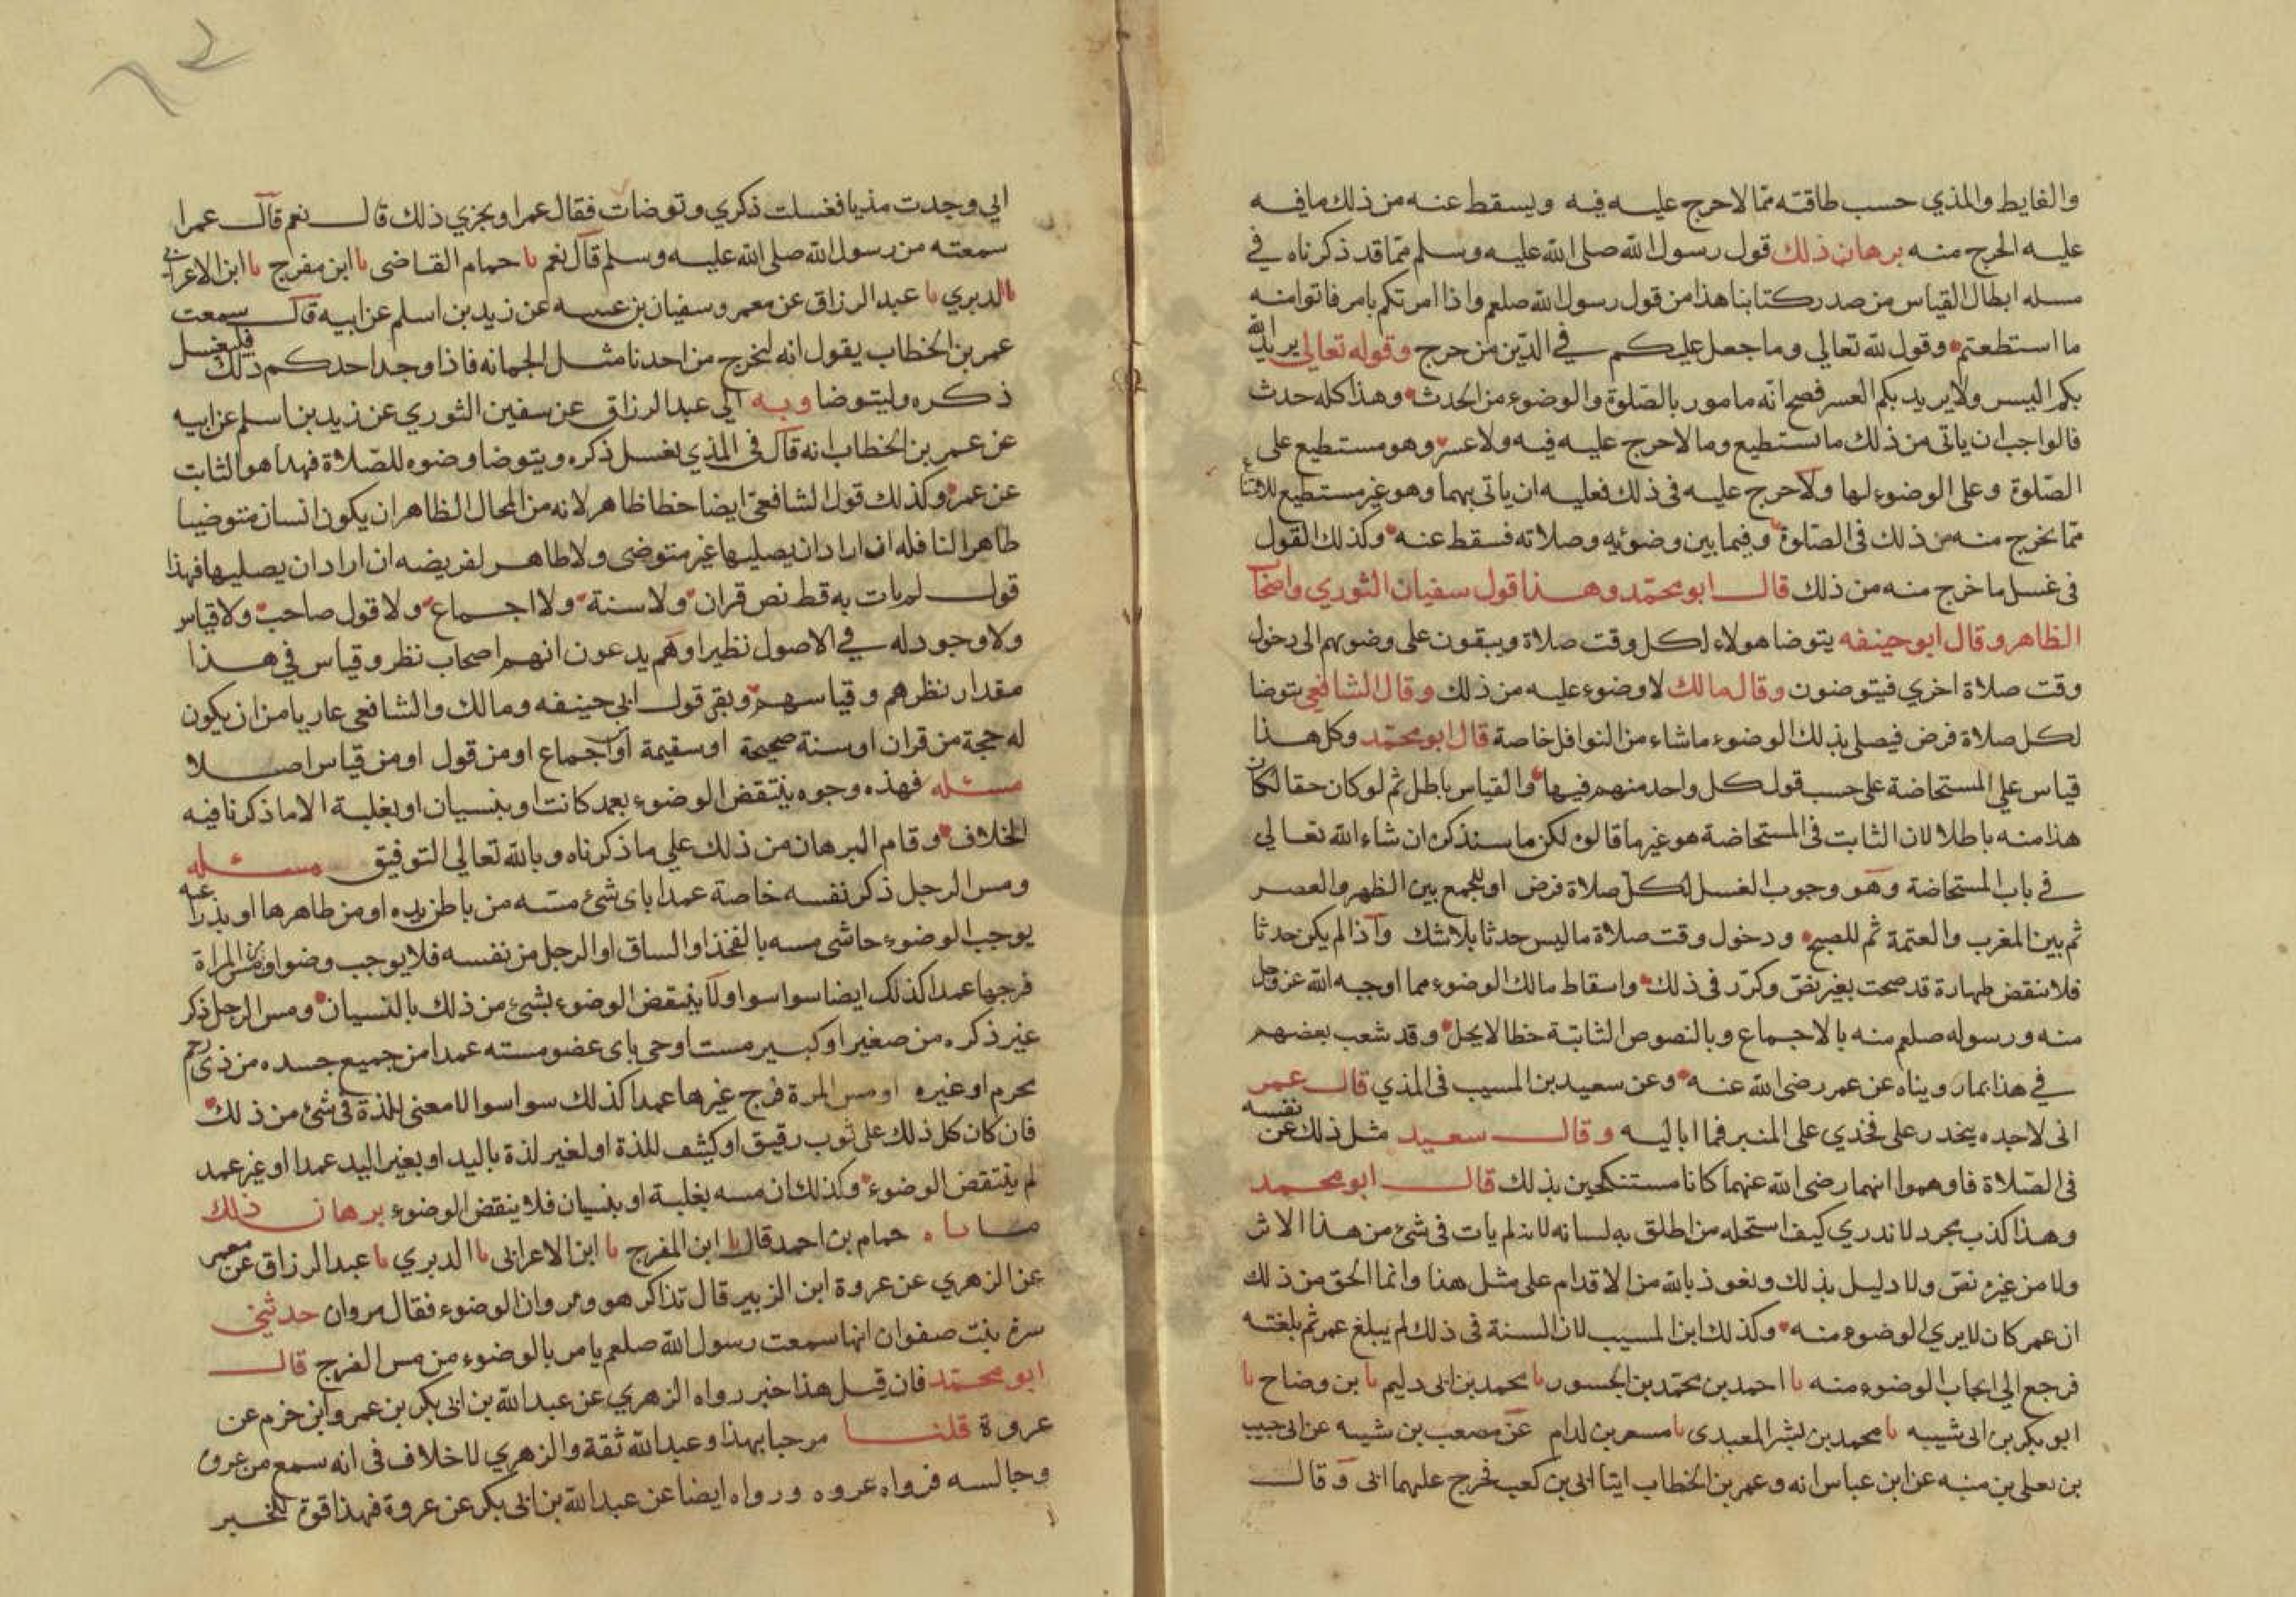 والغايط والمذي حسب طاقته مما لا حرج عليه فيه ويسقط عنه من ذلك ما فيه
عليه الحرج منه برهان ذلك قول رسول الله صلى الله عليه وسلم مما قد ذكرناه في
مسله ابطال القياس من صدر كتابنا هذا من قول رسول الله صلعم واذا امرتكم بامر فاتوا منه
ما استطعتم وقول الله تعالي وما جعل عليكم في الدين من حرج وقوله تعالي يريد الله
بكم اليسر ولا يريد بكم العسر فصح انه مامور بالصلوة والوضوء من الحدث وهذا كله حدث
فالواجب ان ياتى من ذلك ما يستطيع وما لا حرج عليه فيه ولا عسر وهو مستطيع على
الصلوة وعلى الوضوء لها ولا حرج عليه فى ذلك فعليه ان ياتى بهما وهو غير مستطيع للامتناع
مما يخرج منه من ذلك فى الصلوة وفيما بين وضوئيه وصلاته فسقط عنه وكذلك القول
فى غسل ما خرج منه من ذلك قال ابو محمد وهذا قول سفيان الثوري واصحاب
الظاهر وقال ابو حنيفه يتوضا هولاء لكل وقت صلاة ويبقون على وضوئهم الى دخول
وقت صلاة اخري فيتوضون وقال مالك لا وضوء عليه من ذلك وقال الشافعي يتوضا
لكل صلاة فرض فيصلى بذلك الوضوء ما شاء من النوافل خاصة قال ابو محمد وكل هذا
قياس علي المستحاضة على حسب قول كل واحد منهم فيها والقياس باطل ثم لو كان حقا لكان
هذا منه باطلا لان الثابت فى المستحاضة هو غير ما قالوه لكن ما سنذكره ان شاء الله تعالي
في باب المستحاضة وهو وجوب الغسل لكل صلاة فرض او للجمع بين الظهر والعصر
ثم بين المغرب والعتمة ثم للصبح ودخول وقت صلاة ما ليس حدثا بلا شك واذا لم يكن حدثا
فلا ينقض طهارة قد صحت بغير نص وكرر فى ذلك واسقاط مالك الوضوء مما اوجبه الله عز وجل
منه ورسوله صلعم منه بالاجماع وبالنصوص الثابتة خطا لا يحل وقد شعب بعضهم
في هذا بما رويناه عن عمر رضى الله عنه وعن سعيد بن المسيب فى المذي قال عمر
انى لاجده ينحدر على فخدي على المنبر فما اباليه وقال سعيد مثل ذلك عن نفسه
فى الصلاة فاوهموا انهما رضى الله عنهما كانا مستنكحين بذلك قال ابو محمد
وهذا كذب مجرد لا ندري كيف استحله من اطلق به لسانه لانه لم يات فى شئ من هذا الاثر
ولا من غيره نص ولا دليل بذلك ونعوذ بالله من الاقدام على مثل هذا وانما الحق من ذلك
ان عمر كان لا يري الوضوء منه وكذلك ابن المسيب لان السنة فى ذلك لم يبلغ عمر ثم بلغته
فرجع الي ايجاب الوضوء منه نا احمد بن محمد بن الجسور نا محمد بن ابى دليم نا بن وضاح نا
ابو بكر بن ابى شيبه نا محمد بن بشر العبدى نا مسعر بن كدام عن مصعب بن شيبه عن ابى حبيب
بن يعلى بن منيه عن ابن عباس انه وعمر بن الخطاب ايتا ابي بن كعب فخرج عليهما ابى وقال
اني وجدت مذيا فغسلت ذكري وتوضات فقال عمر او يجزي ذلك قال نعم قال عمر ا
سمعته من رسول الله صلى الله عليه وسلم قال نعم نا حمام القاضى نا ابن مفرج نا ابن الاعرابي
نا الدبري نا عبد الرزاق عن معمر وسفيان بن عيينه عن زيد بن اسلم عن ابيه قال سمعت
عمر بن الخطاب يقول انه ليخرج من احدنا مثل الجمانه فاذا وجد احدكم ذلك فليغسل
ذكره وليتوضا وبه الي عبد الرزاق عن سفين الثوري عن زيد بن اسلم عن ابيه
عن عمر بن الخطاب انه قال فى المذي يغسل ذكره ويتوضا وضوه للصلاة فهذا هو الثابت
عن عمر وكذلك قول الشافعي ايضا خطا ظاهر لانه من المحال الظاهر ان يكون انسان متوضيا
طاهرا لنافله ان اراد ان يصليها غير متوضى ولا طاهر لفريضه ان اراد ان يصليها فهذا
قول لم يات به قط نص قران ولا سنة ولا اجماع ولا قول صاحب ولا قياس
ولا وجود له في الاصول نظيرا وهم يدعون انهم اصحاب نظر وقياس في هذا
مقدار نظرهم وقياسهم وبقى قول ابى حنيفه ومالك والشافعى عاريا من ان يكون
له حجة من قران او سنة صحيحة او سقيمة او اجماع او من قول او من قياس اصلا
مسئله فهذه وجوه ينتقض الوضوء بعمد كانت او بنسيان او بغلبة الا ما ذكرنا فيه
الخلاف وقام البرهان من ذلك علي ما ذكرناه وبالله تعالي التوفيق مسئله
ومس الرجل ذكر نفسه خاصة عمدا باى شئ مسه من باطن يده او من ظاهرها او بذراعه
يوجب الوضوء حاشى مسه بالفخذ او الساق او الرجل من نفسه فلا يوجب وضوا ومس المراة
فرجها عمدا كذلك ايضا سوا سوا ولا ينتقض الوضوء بشئ من ذلك بالنسيان ومس الرجل ذكر
غير ذكره من صغير او كبير ميت او حي باى عضو مسته عمدا من جميع جسده من ذى رحم
محرم او غيره او مس المرة فرج غيرها عمدا كذلك سوا سوا لا معنى للذة فى شئ من ذلك
فان كان كل ذلك على ثوب رقيق او كثيف للذة او لغير لذة باليد او بغير اليد عمدا او غير عمد
لم ينتقض الوضوء وكذلك ان مسه بغلبة او بنسيان فلا ينقض الوضوء برهان ذلك
حمام بن احمد قال نا ابن المفرج نا ابن الاعرابى نا الدبري نا عبد الرزاق عن معمر
عن الزهري عن عروة ابن الزبير قال تذاكر هو ومروان الوضوء فقال مروان حدثتني
بسرة بنت صفوان انها سمعت رسول الله صلعم يامر بالوضوء من مس الفرج قال
ابو محمد فان قيل هذا خبر رواه الزهري عن عبد الله بن ابى بكر بن عمرو ابن حزم عن
عروة قلنا مرحبا بهذا وعبد الله ثقة والزهري لا خلاف فى انه سمع من عروة
وجالسه فرواه عروه ورواه ايضا عن عبد الله بن ابى بكر عن عروة فهذا قوة للخبر